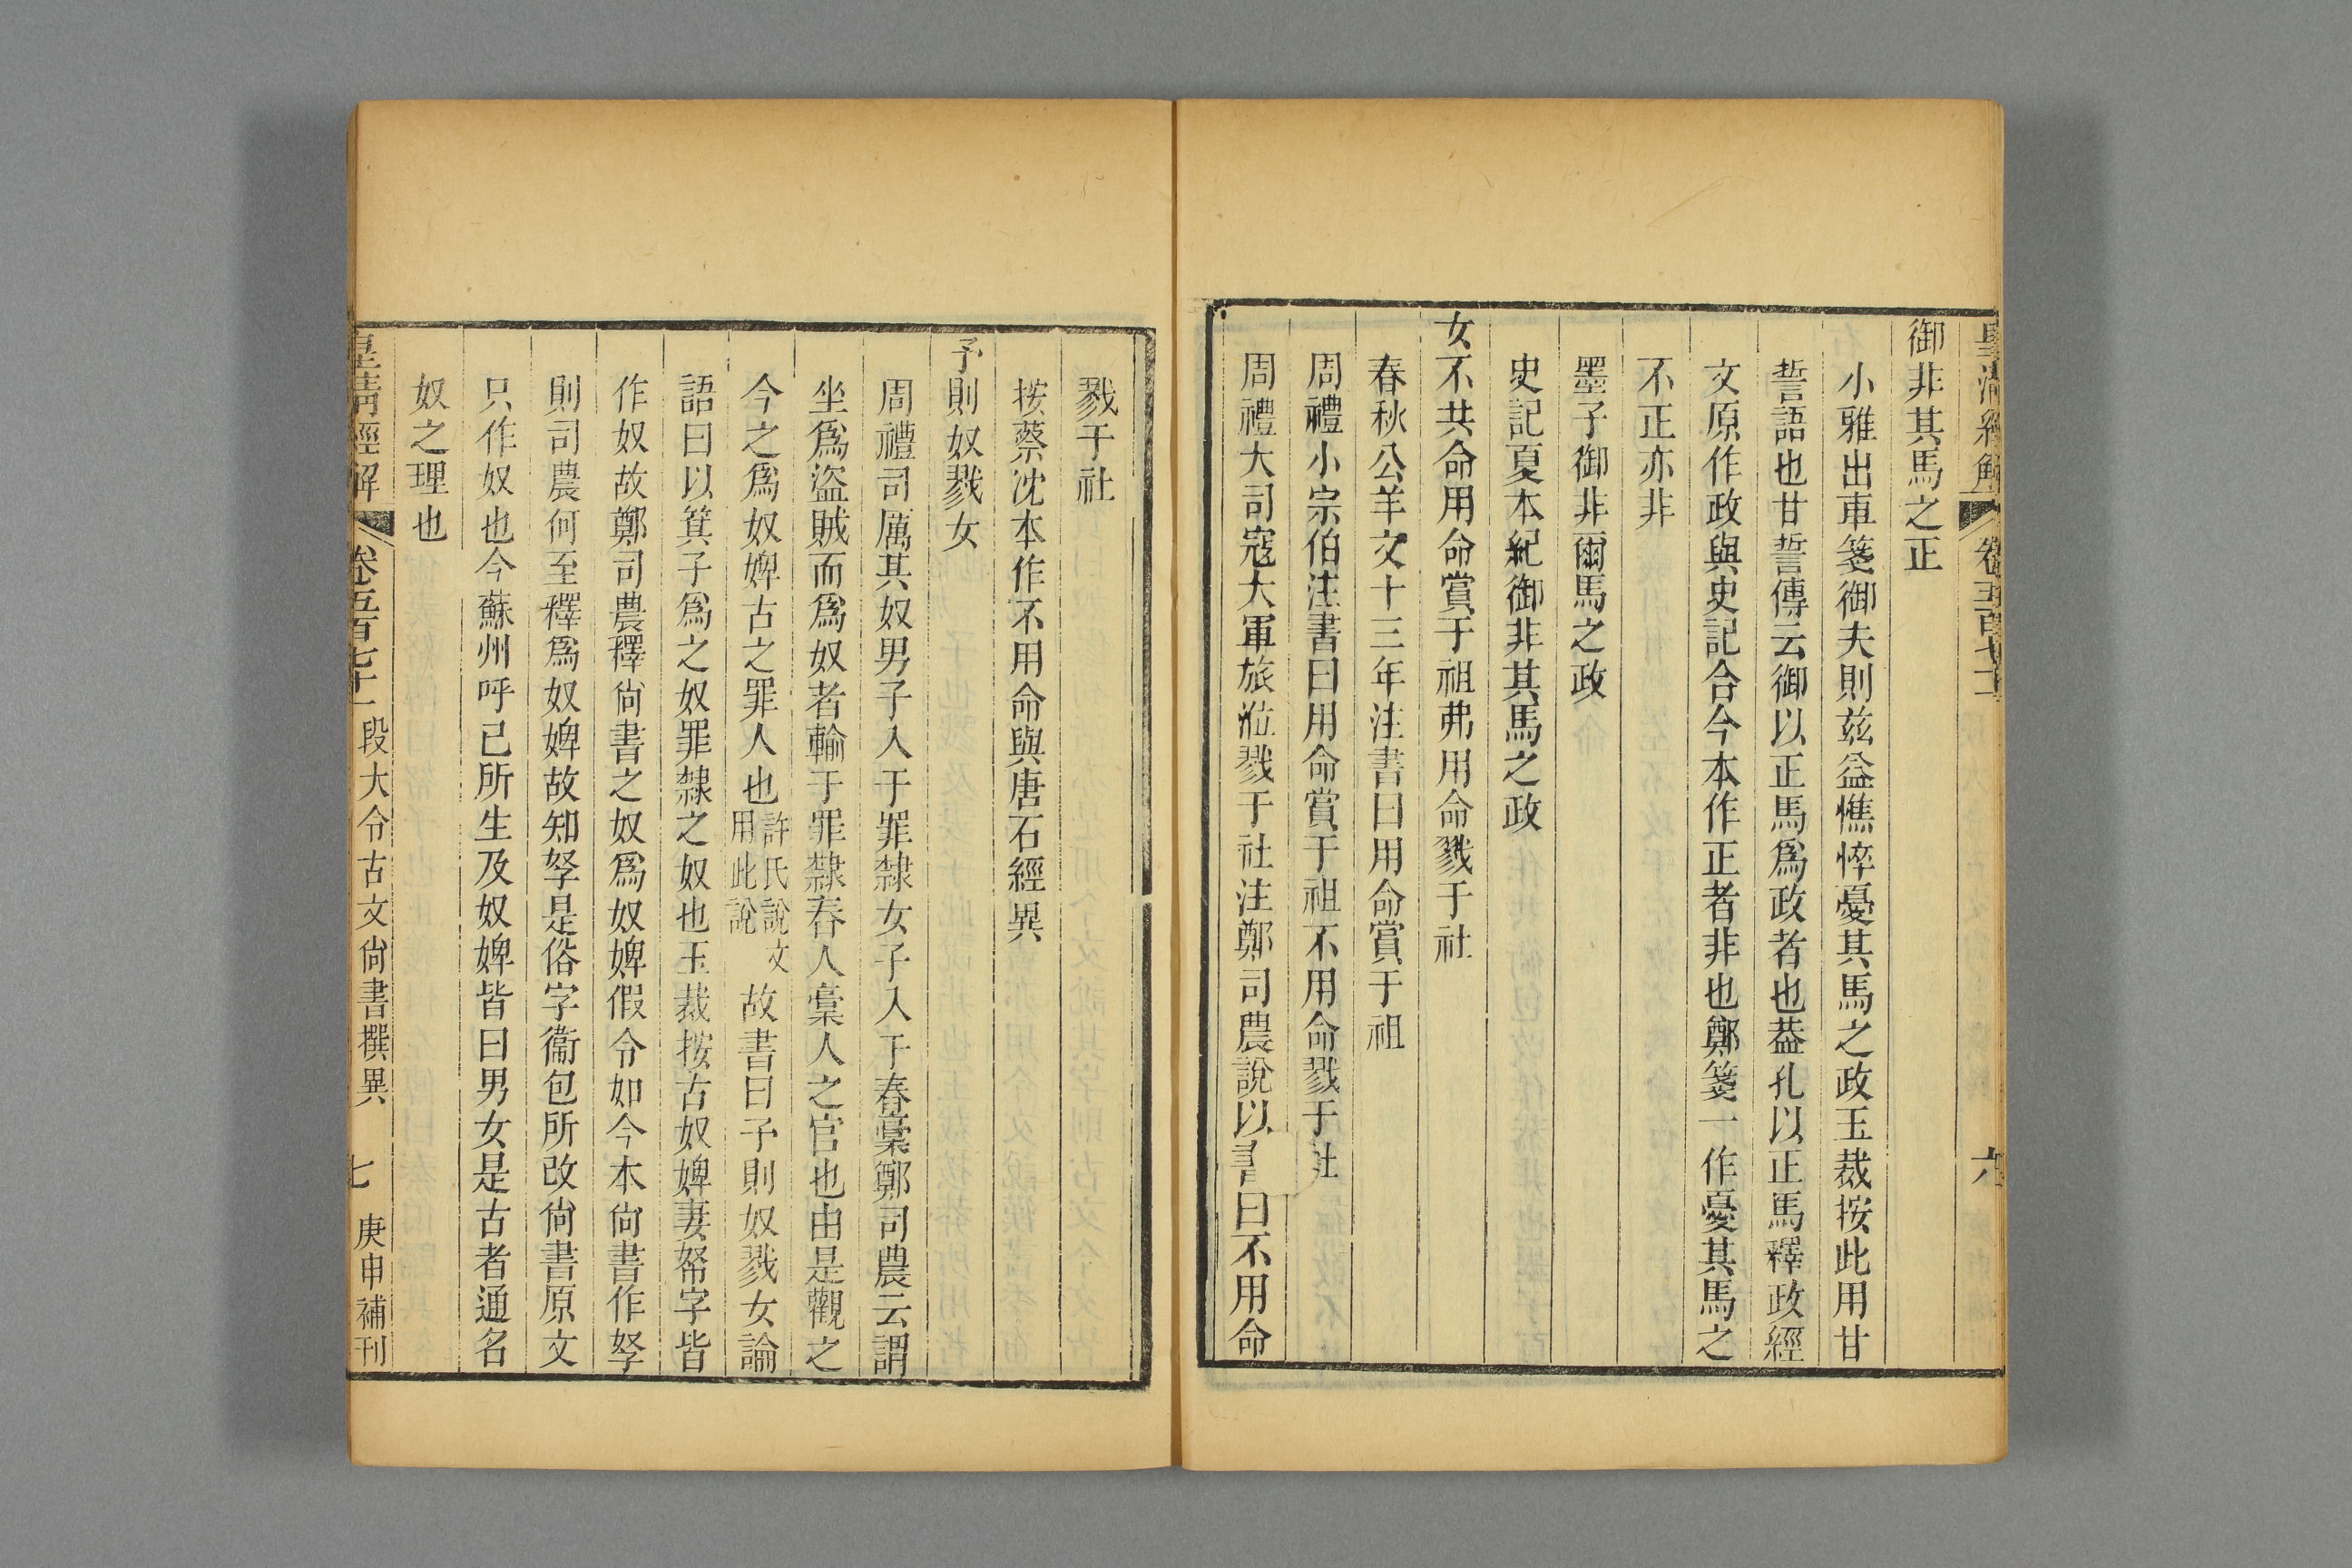 皇清經解 卷五百七十一 六
御非其馬之正
小雅出車箋御夫則兹益憔悴憂其馬之政玉裁按此用甘
誓語也甘誓傳云御以正馬爲政者也葢孔以正馬釋政經
文原作政與史記合今本作正者非也鄭箋一作憂其馬之
不正亦非
墨子御非爾馬之政
史記夏本紀御非其馬之政
女不共命用命賞于祖弗用命戮于社
春秋公羊文十三年注書曰用命賞于祖
周禮小宗伯注書曰用命賞于祖不用命戮于社
周禮大司寇大軍旅涖戮于社注鄭司農說以書曰不用命
戮于社
按蔡沈本作不用命與唐石經異
予則奴戮女
周禮司厲其奴男子入于罪隸女子入于舂槀鄭司農云謂
坐爲盜賊而爲奴者輸于罪隸舂人槀人之官也由是觀之
今之爲奴婢古之罪人也許氏說文用此說故書曰予則奴戮女論
語曰以箕子爲之奴罪隸之奴也玉裁按古奴婢妻帑字皆
作奴故鄭司農釋尙書之奴爲奴婢假令如今本尙書作孥
則司農何至釋爲奴婢故知孥是俗字衞包所改尙書原文
只作奴也今蘇州呼己所生及奴婢皆曰男女是古者通名
奴之理也
皇清經解 卷五百七十一 段大令古文尙書撰異 七 庚申補刊